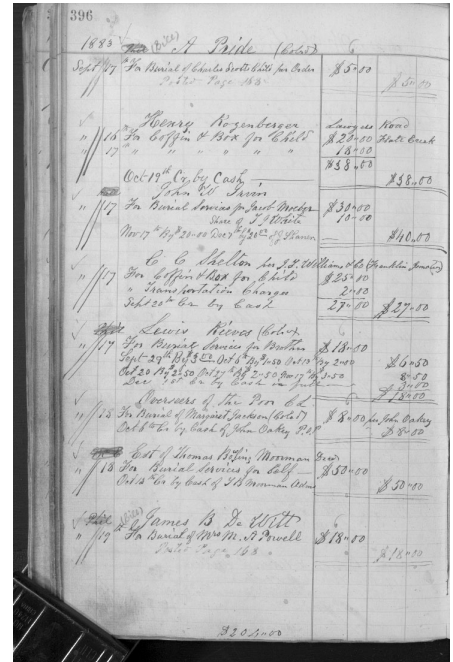 396
1883 (Bill) A Pride (Cold)
Sept 17 For Burial of Charles Scotts Child per Order $5.00
Posted Page 168 $5.00
Henry Rozenberger Lawyers Road
" 16 For Coffin & Box for Child $20.00 Flat Creek
" 17 " " " " " 18.00
$38.00
Oct 19th Cr by Cash $38.00
John W Irvin
" 17 For Burial Services for Jacob $30.00
Share of T J White 10.00
Nov 17th By $20.00 Dec 7th by 20.00 $40.00
C C Shelton per J P Williams & Co (Franklin
" 17 For Coffin & Box for Child $25.00
" Transportation Charges 2.00
Sept 20th Cr by Cash 27.00 $27.00
Lewis Reeves (Cold)
" 17 For Burial Services for Brother $18.00
Sept 29th By $3.00 Oct 6th By 1.50 Oct 13th By 2.00 $6.50
Oct 20 By 2.50 Oct 27th By 2.50 Nov 17th By 3.50 8.50
Dec 1st Cr by Cash in full 3.00
$18.00
Overseers of the Poor
" 15 For Burial of Margaret Jackson (Cold) $8.00 per John Oakey
Oct 8th Cr by Cash of John Oakey $8.00
Est of Thomas Moorman Decd
" 18 For Burial Services for Self $50.00
Oct 15th Cr by Cash of Moorman $50.00
(Bill) James B De Witt
" 19 For Burial of Mrs M. A Powell $18.00
Posted Page 168 $18.00